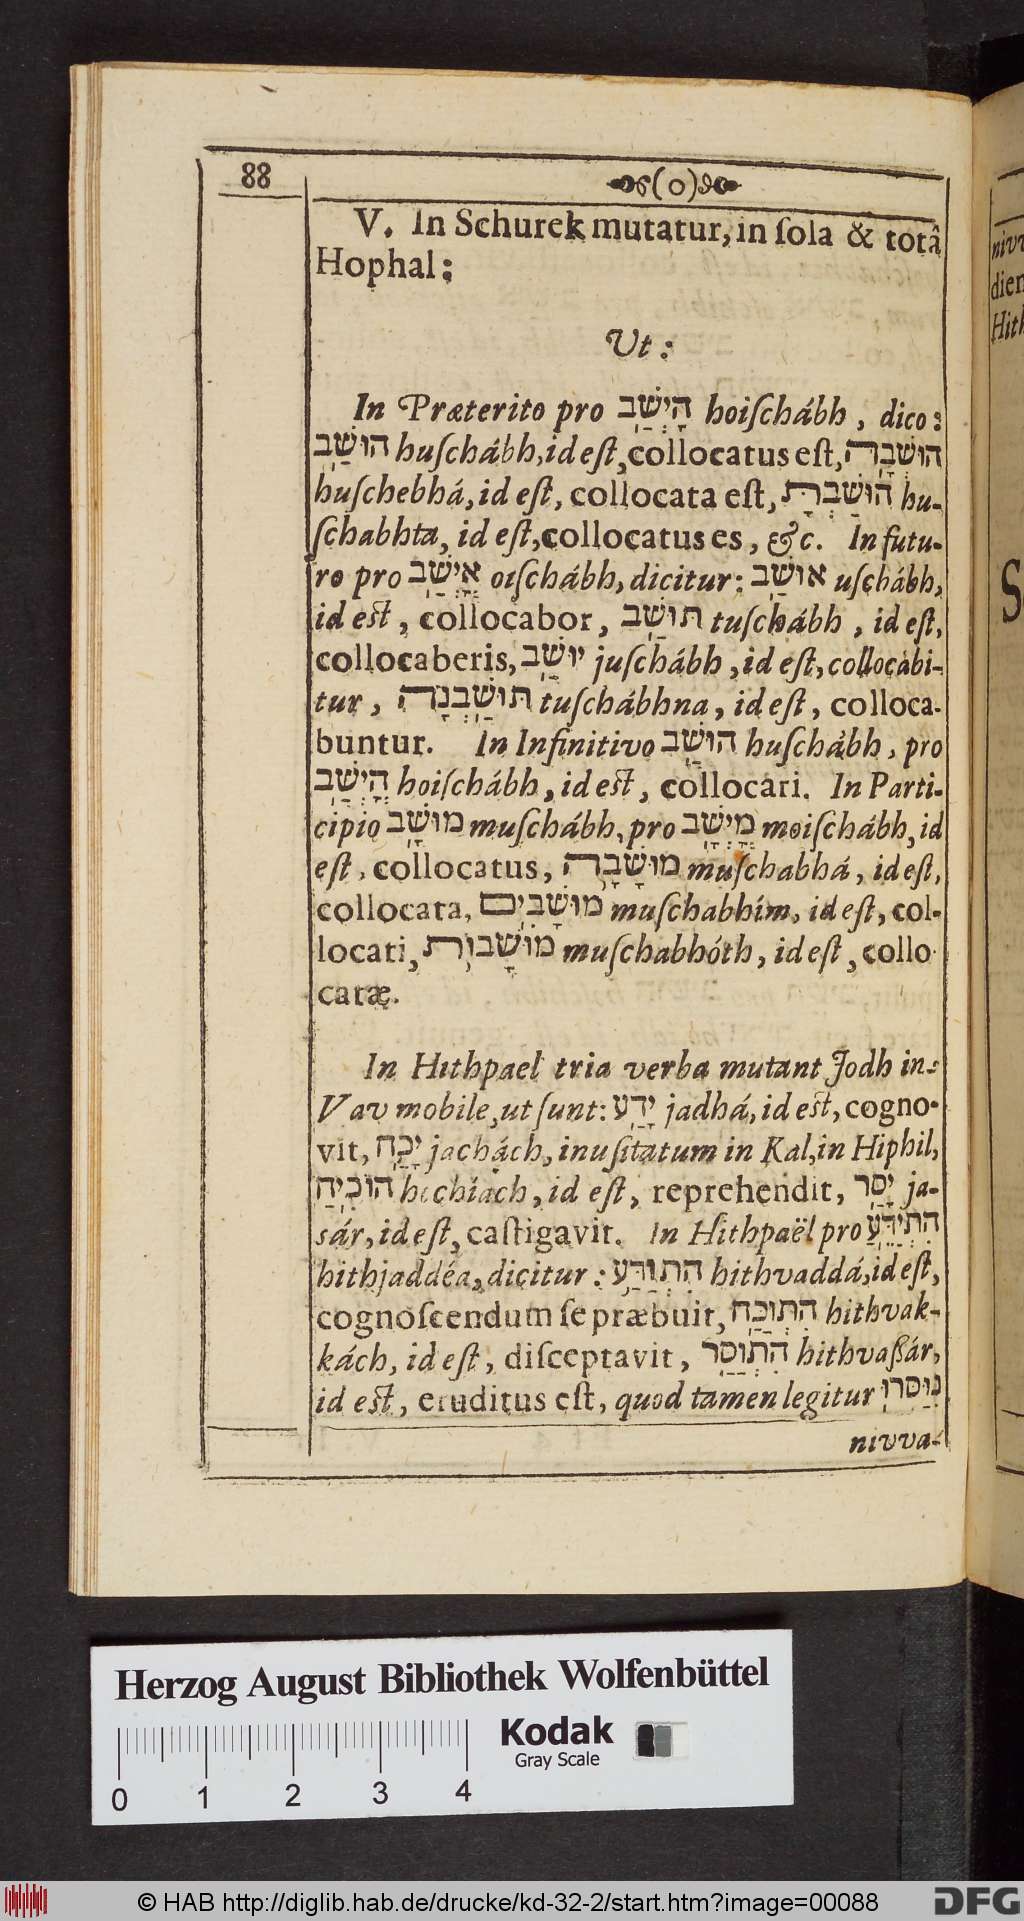 88
(o)
V. In Schurek mutatur, in ſola & totâ
Hophal:
Ut:
In Præterito pro הָיְשַׁב hoiſchábh, dico:
הוּשַׁב huſchábh, id eſt, collocatus eſt, הוּשְׁבָה
huſchebhá, id eſt, collocata eſt, הוּשַׁבְתָּ hu-
ſchabhta, id eſt, collocatus es, &c. In futu-
ro pro אָיְשַׁב oiſchábh, dicitur: אוּשַׁב uſchábh,
id eſt, collocabor, תוּשַׁב tuſchábh, id eſt,
collocaberis, יוּשַׁב juſchábh, id eſt, collocabi-
tur, תּוּשַׁבְנָה tuſchábhna, id eſt, colloca-
buntur. In Infinitivo הוּשַׁב huſchábh, pro
הָיְשַׁב hoiſchábh, id eſt, collocari. In Parti-
cipio מוּשָׁב muſchábh, pro מָיְשָׁב moiſchábh, id
eſt, collocatus, מוּשָׁבָה muſchabhá, id eſt,
collocata, מוּשָׁבִים muſchabhím, id eſt, col-
locati, מוּשָׁבוֹת muſchabhóth, id eſt, collo
catæ.
In Hithpael tria verba mutant Jodh in-
Vav mobile, ut ſunt: יָדַע jadhá, id eſt, cogno-
vit, יָכַח jachách, inuſitatum in Kal, in Hiphil,
הוֹכִיחַ hochíach, id eſt, reprehendit, יָסַר ja-
sár, id eſt, caſtigavit. In Hithpaël pro הִתְיַדֵּעַ
hithjaddéa, dicitur: הִתְוַדַּע hithvaddá, id eſt,
cognoſcendum ſe præbuit, הִתְוַכַּח hithvak-
kách, id eſt, diſceptavit, הִתְוַסַּר hithvaßár,
id eſt, eruditus eſt, quod tamen legitur נִוַּסְּרוּ
nivva-
nivv
dien
Hith
Herzog August Bibliothek Wolfenbüttel
Kodak
Gray Scale
0 1 2 3 4
© HAB http://diglib.hab.de/drucke/kd-32-2/start.htm?image=00088
DFG